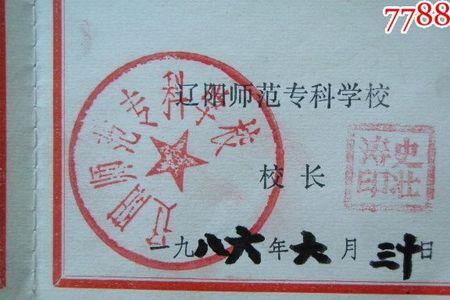 7788
辽阳师范专科学校
辽阳师范专科学校
校长
史
印
一九八六年六月三十日